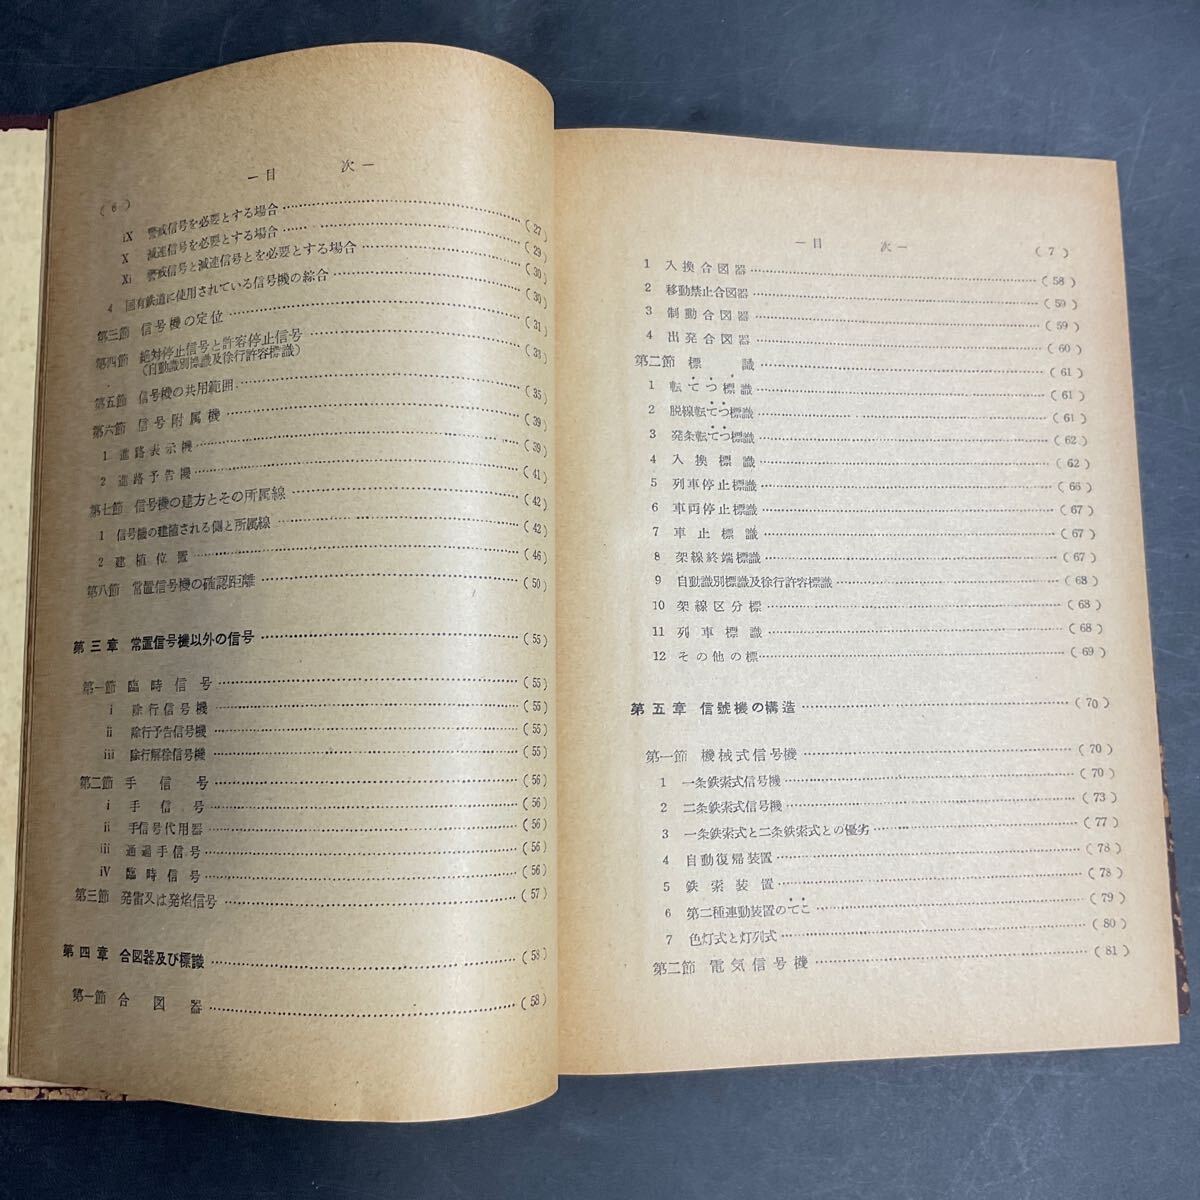 ―目　次―
(6)
iX 警戒信号を必要とする場合……(27)
X 減速信号を必要とする場合……(29)
Xi 警戒信号と減速信号とを必要とする場合……(30)
4 国有鉄道に使用されている信号機の綜合……(30)
第三節 信号機の定位……(31)
第四節 絶対停止信号と許容停止信号……(33)
(自動識別標識及徐行許容標識)
第五節 信号機の共用範囲……(35)
第六節 信号附属機……(39)
1 進路表示機……(39)
2 進路予告機……(41)
第七節 信号機の建方とその所属線……(42)
1 信号機の建植される側と所属線……(42)
2 建植位置……(46)
第八節 常置信号機の確認距離……(50)
第三章 常置信号機以外の信号……(55)
第一節 臨時信号……(55)
i 除行信号機……(55)
ii 除行予告信号機……(55)
iii 除行解徐信号機……(55)
第二節 手信号……(56)
i 手信号……(56)
ii 手信号代用器……(56)
iii 通過手信号……(56)
iV 臨時信号……(56)
第三節 発雷又は発焔信号……(57)
第四章 合図器及び標識……(58)
第一節 合図器……(58)
―目　次―
(7)
1 入換合図器……(58)
2 移動禁止合図器……(59)
3 制動合図器……(59)
4 出発合図器……(60)
第二節 標識……(61)
1 転てつ標識……(61)
2 脱線転てつ標識……(61)
3 発条転てつ標識……(62)
4 入換標識……(62)
5 列車停止標識……(66)
6 車両停止標識……(67)
7 車止標識……(67)
8 架線終端標識……(67)
9 自動識別標識及徐行許容標識……(68)
10 架線区分標……(68)
11 列車標識……(68)
12 その他の標……(69)
第五章 信號機の構造……(70)
第一節 機械式信号機……(70)
1 一条鉄索式信号機……(70)
2 二条鉄索式信号機……(73)
3 一条鉄索式と二条鉄索式との優劣……(77)
4 自動復帰装置……(78)
5 鉄索装置……(78)
6 第二種連動装置のてこ……(79)
7 色灯式と灯列式……(80)
第二節 電気信号機……(81)